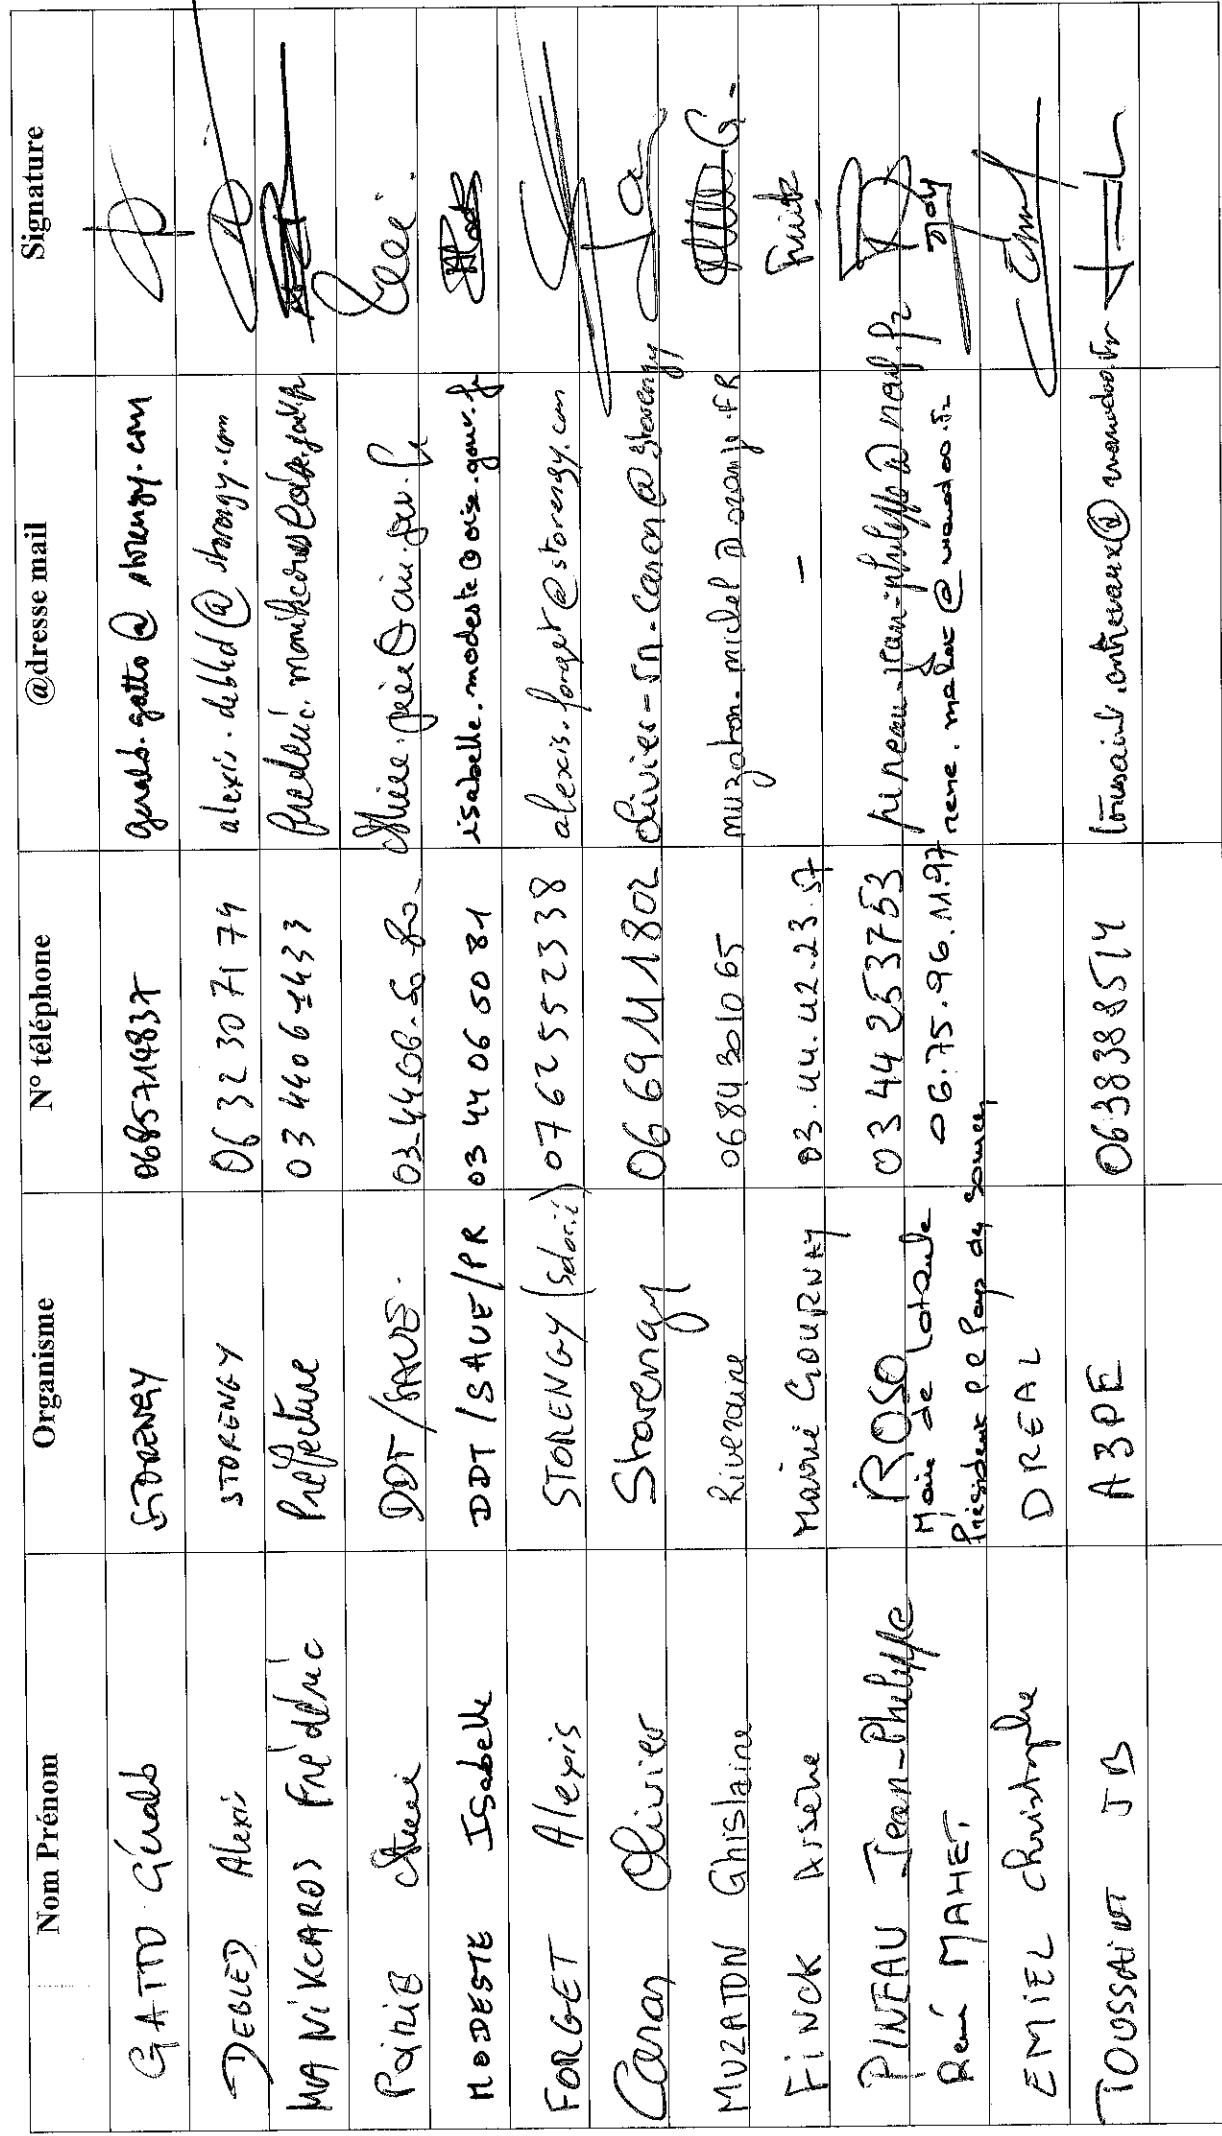 Nom Prénom Organisme N° téléphone @dresse mail Signature
GATTO Gérald STORENGY 0685714837 gerald.gatto@storengy.com
DEBLED Alexis STORENGY 06 32 30 71 74 alexis.debled@storengy.com
MANIKCAROS Frédéric Préfecture 03 44 06
DDT/SAUE 03.44.06.50.80
MODESTE Isabelle DDT/SAUE/PR 03 44 06 50 81 isabelle.modeste@oise.gouv.fr
FORGET Alexis STORENGY (Salarié) 07 62 55 23 38 alexis.forget@storengy.com
Caron Olivier Storengy 0669111802 olivier-sn.caron@storengy
MUZATON Ghislaine Riveraine 0684301065 muzaton.michel@orange.FR
FINCK Arsène Mairie GOURNAY 03.44.42.23.57 - Finck
PINEAU Jean-Philippe ROSO 03 44 253753 pineau.jean-philippe@neuf.fr
René MAHET Maire de Lataule 06.75.96.11.97 rene.mahet@wanadoo.fr
Président CC Pays des Sources
EMIEL Christophe DREAL
TOUSSAINT JB A3PE 0638388514 toussaint.antheaux@wanadoo.fr